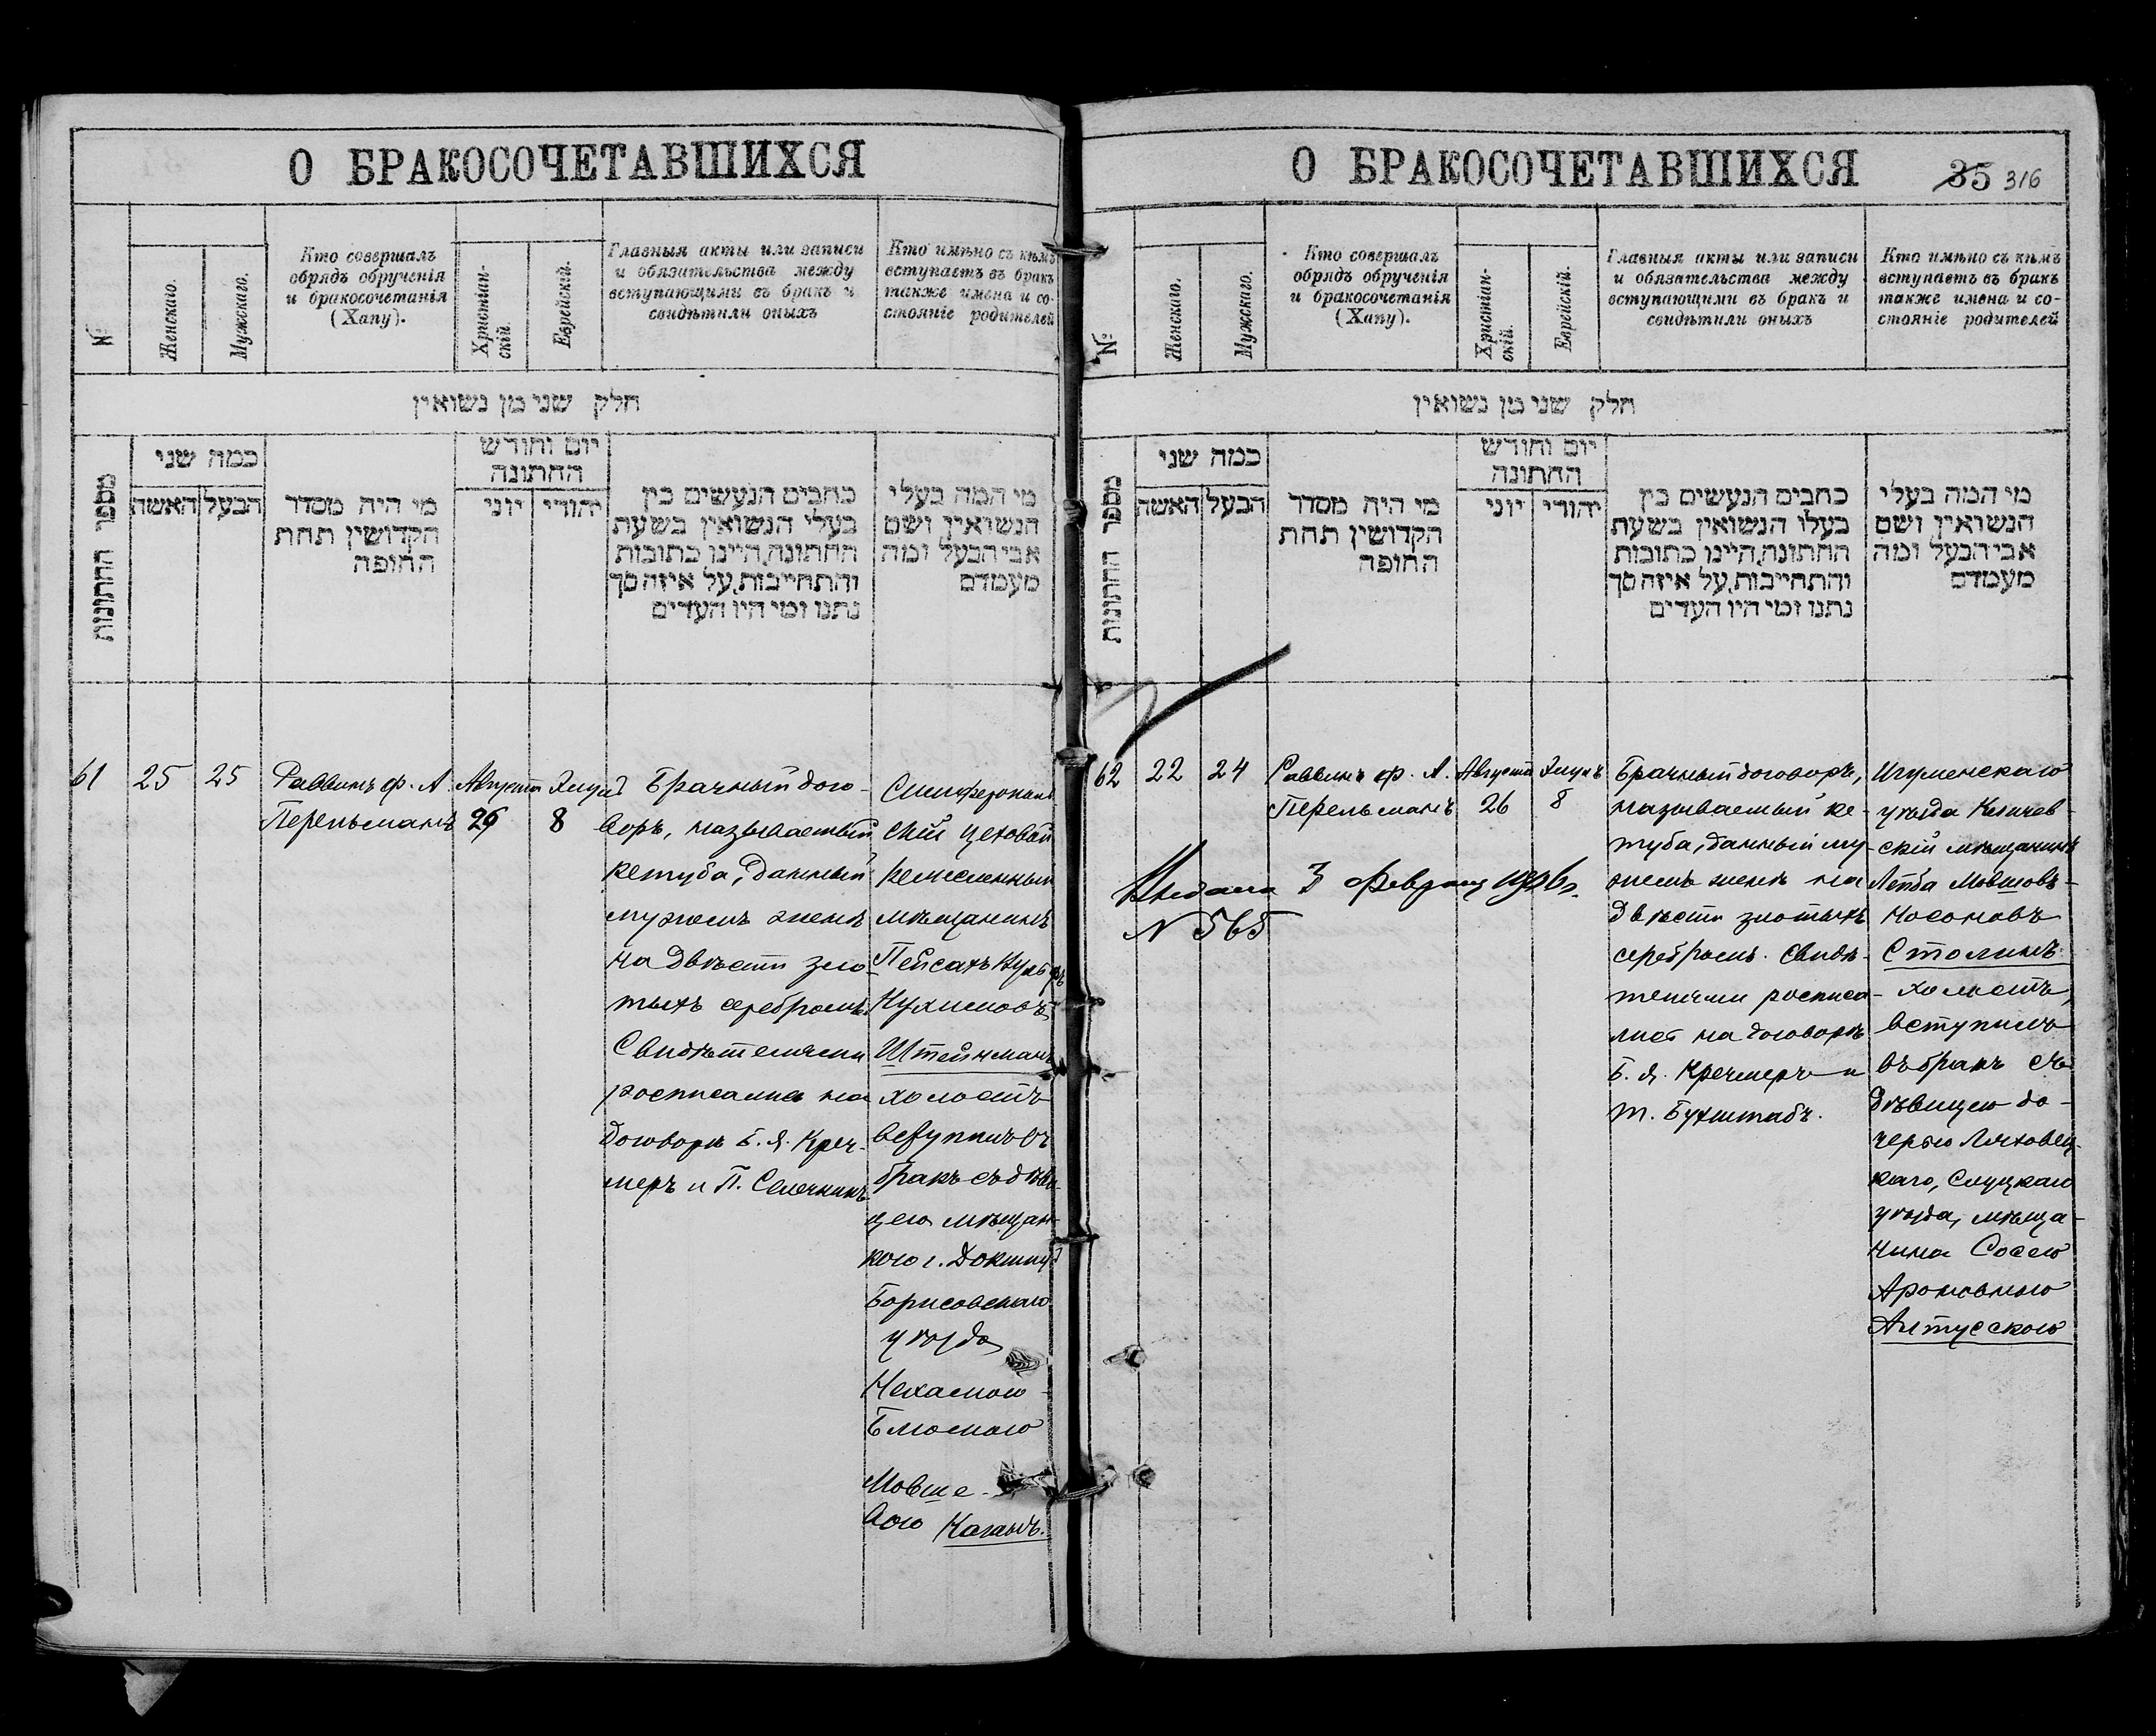 О БРАКОСОЧЕТАВШИХСЯ
№
Женскаго.
Мужскаго.
Кто совершалъ
обрядъ обрученія
и бракосочетанія
(Хапу).
Христіан-
скій.
Еврейскій.
Главныя акты или записи
и обязательства между
вступающими въ бракъ и
свидѣтили оныхъ
Кто имѣно съ кѣмъ
вступаетъ въ бракъ
также имена и со-
стояніе родителей
חלק שני מן נשואין
מספר החתונות
כמה שני
האשה
הבעל
מי היה מסדר
הקדושין תחת
החופה
יום וחודש
החתונה
יוני
יהודי
כתבים הנעשים בין
בעלי הנשואין בשעת
החתונה, היינו כתובות
והתחייבות, על איזה סך
נתנו ומי היו העדים
מי המה בעלי
הנשואין ושם
אבי הבעל ומה
מעמדם
61
25
25
Раввинъ ф. А.
Перельманъ
Августа
26
Элула
8
Брачный дого-
воръ, называемый
кетуба, данный
мужемъ женѣ
на двѣсти зло-
тыхъ серебромъ.
Свидѣтелями
росписались на
договорѣ Б. Я. Креч-
меръ и П.
Симферополь
скій цеховой
ремесленный
мѣщанинъ
Пейсахъ
Нухимовъ
Штейнманъ
холостъ
вступилъ въ
бракъ съ дѣви-
цею мѣщан-
кою г. Докшицъ
Борисовскаго
уѣзда
Нехамою
Блюмою
Мовше-
вою Каганъ.
О БРАКОСОЧЕТАВШИХСЯ
35 316
№
Женскаго.
Мужскаго.
Кто совершалъ
обрядъ обрученія
и бракосочетанія
(Хапу).
Христіан-
скій.
Еврейскій.
Главныя акты или записи
и обязательства между
вступающими въ бракъ и
свидѣтили оныхъ
Кто имѣно съ кѣмъ
вступаетъ въ бракъ
также имена и со-
стояніе родителей
חלק שני מן נשואין
מספר החתונות
כמה שני
האשה
הבעל
מי היה מסדר
הקדושין תחת
החופה
יום וחודש
החתונה
יוני
יהודי
כתבים הנעשים בין
בעלי הנשואין בשעת
החתונה, היינו כתובות
והתחייבות, על איזה סך
נתנו ומי היו העדים
מי המה בעלי
הנשואין ושם
אבי הבעל ומה
מעמדם
62
22
24
Раввинъ ф. А.
Перельманъ
Августа
26
Элулъ
8
Выдана 3 Февраля 1926 г.
N 565
Брачный договоръ,
называемый ке-
туба, данный му-
жемъ женѣ на
двѣсти злотыхъ
серебромъ. Свидѣ-
телями росписа-
лись на договорѣ
Б. Я. Кречмеръ и
Т. Бухштабъ.
Игуменскаго
уѣзда Кличев-
скій мѣщанинъ
Лейба Мовшовъ-
Носоновъ
Столинъ
холостъ,
вступилъ
въ бракъ съ
дѣвицею до-
черью Ляховец-
каго, Слуцкаго
уѣзда, мѣща-
нина Сосею
Ароновною
Алтусскою